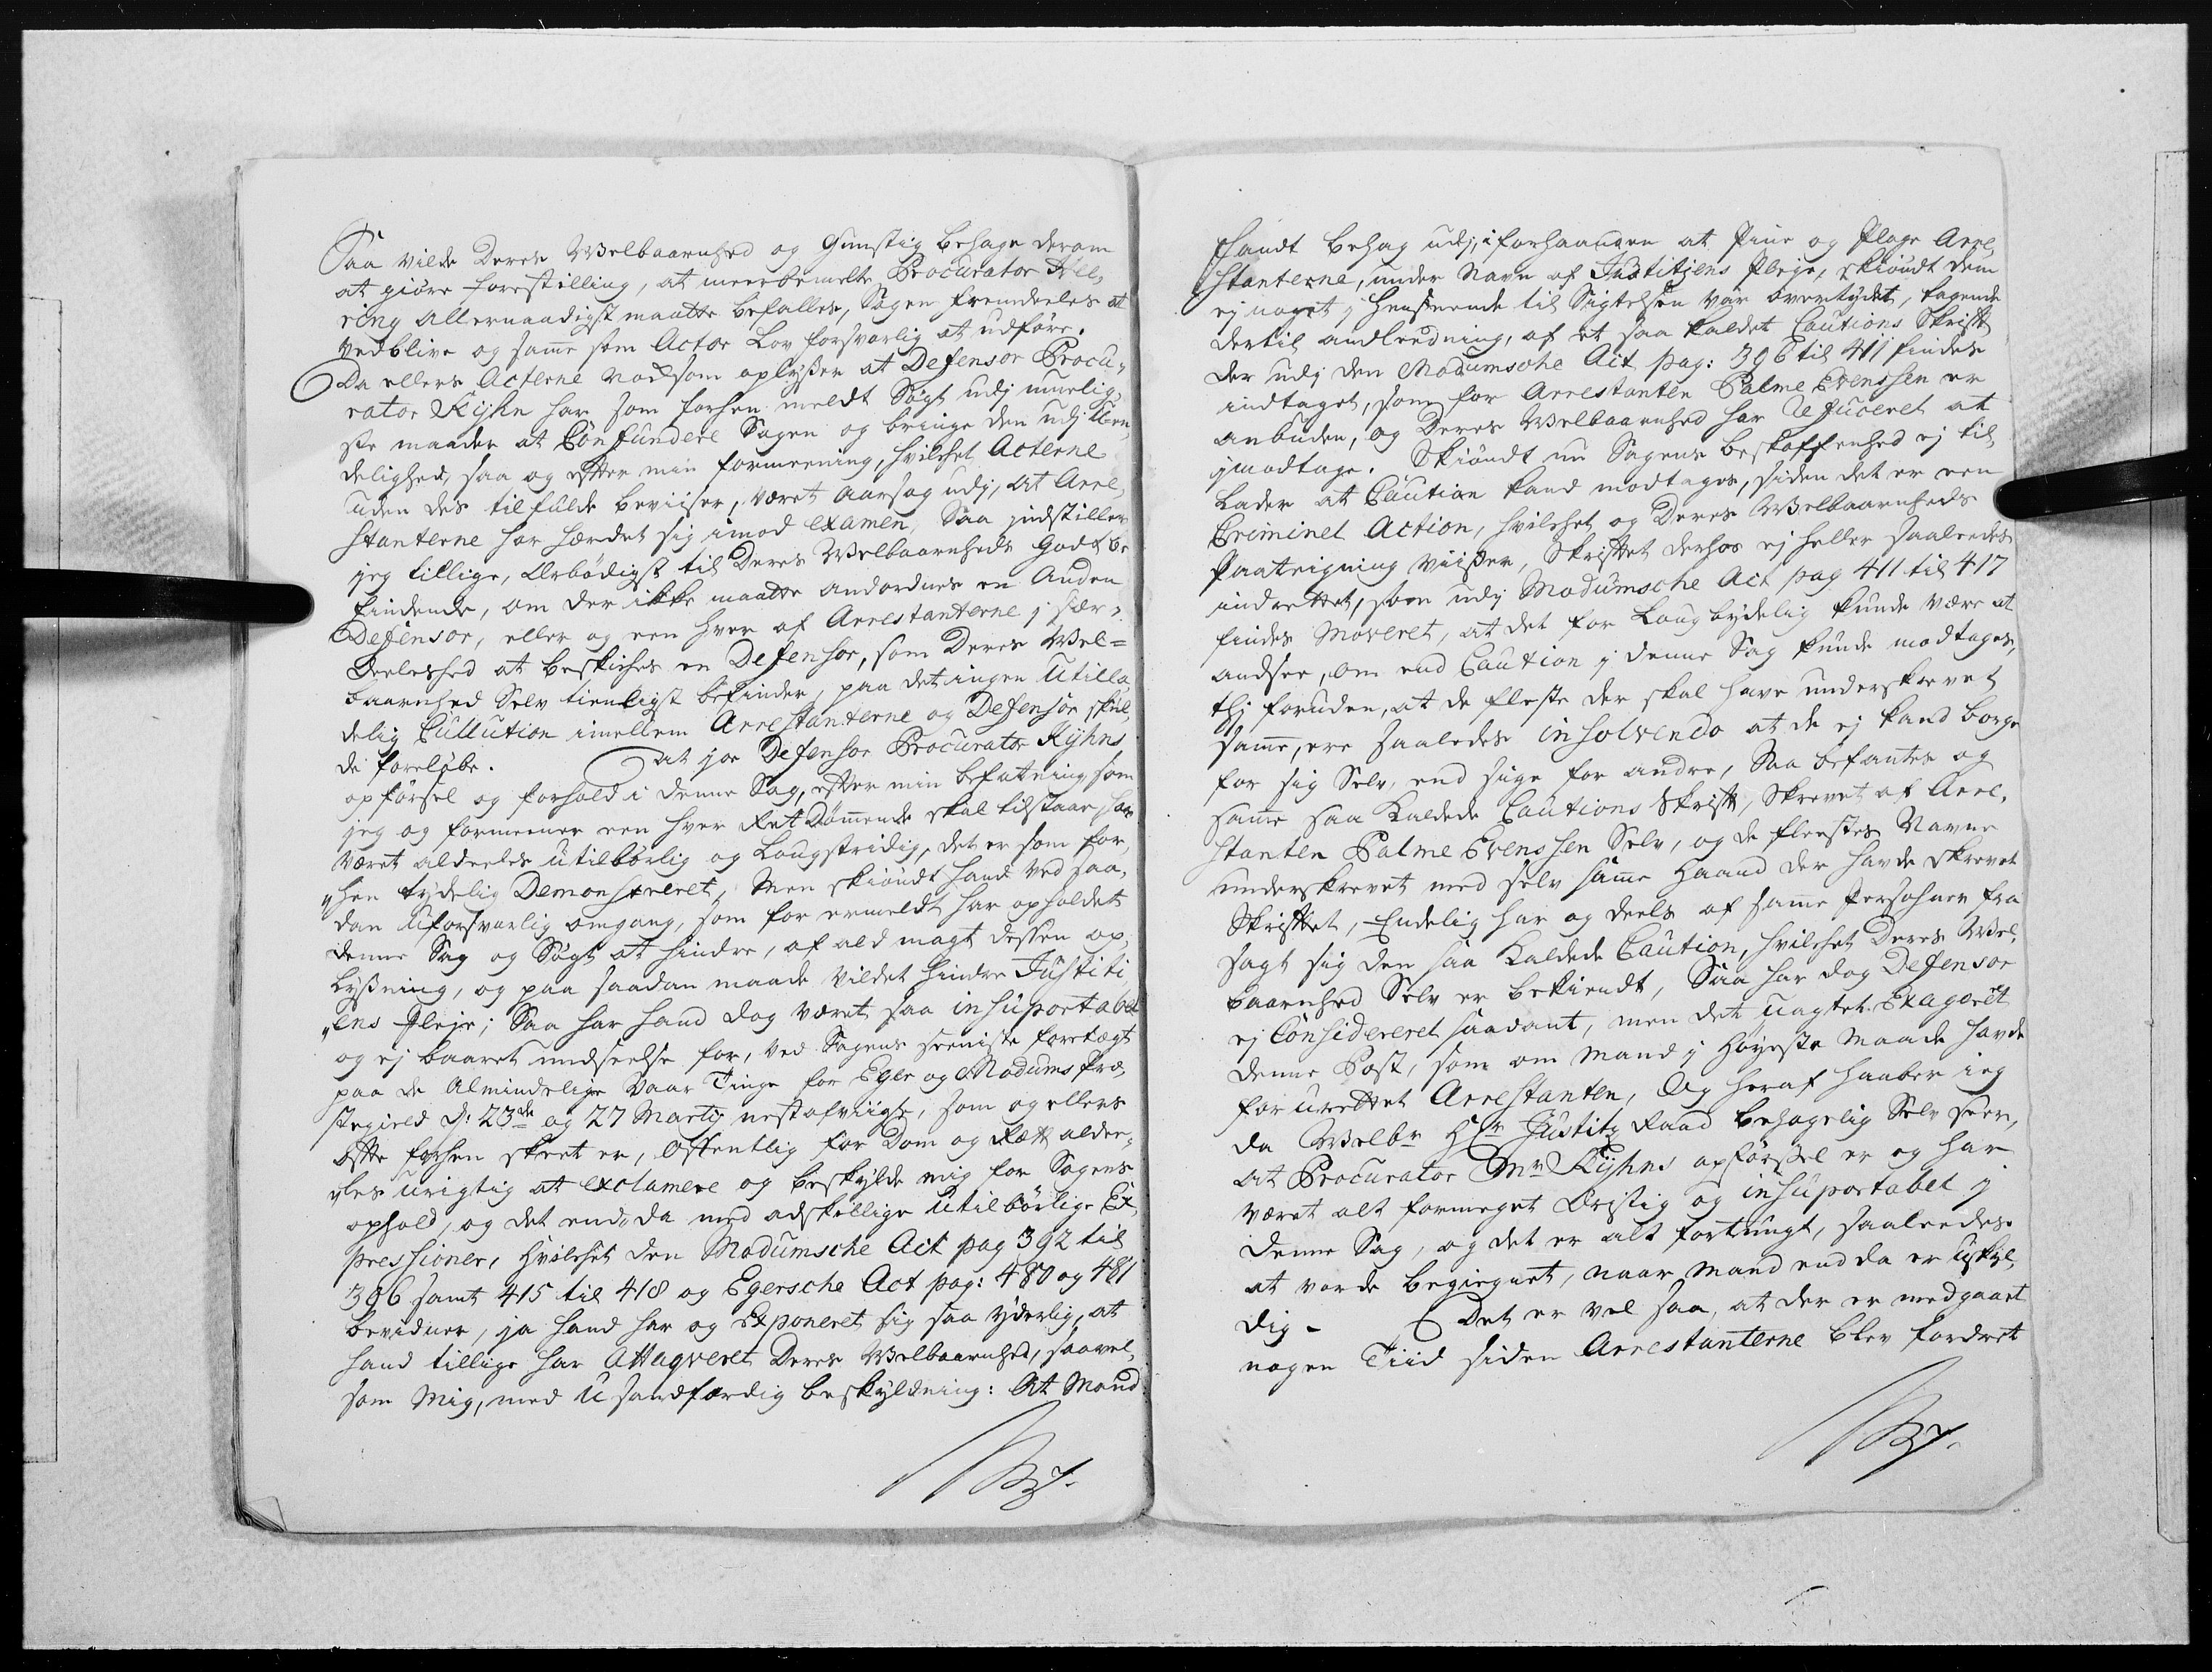 Saa vilde Deres Welbaarnhed og Gunstig behage derom
at giöre forestilling, at meerbemelte Procurator Hee,
ring allernaadigst maatte befalles, Sagen fremdeeles at
vedblive og samme som Actor Lov forsvarlig at udföre.
Da ellers Acterne noksom oplyser at Defensor Procu,
rator Kyhn har som forhen meldt Sögt udj muelig,
ste maader at Confundere Sagen og bringe den udj Uen,
delighed, saa og efter min formeening, hvilchet Acterne
uden des tilfulde beviiser, været aarsag udj, at Arre,
stanterne har hærdet sig imod examen, Saa jndstilles
jeg tillige, Ærbödigst til Deres Welbaarnheds Godt be
findende, om der ikke maatte andordnes en Anden
Defensor, eller og een hver af Arrestanterne j sær,
deeleshed at beskiches en Defensor, som Deres Wel=
baarnhed Selv tienligst befinder, paa det ingen Utilla,
delig Cullution imellem Arrestanterne og Defensor skul,
de foreløbe. At jor Defensor Procurator Kyhns
opförsel og forhold i denne Sag, efter min befatning, som
jeg og formeener een hver Ret Dømmende skal tilstaar, har
været aldeeles utilbörlig og Lougstridig, det er som for,
hen tydelig Demonstreret, Men skiöndt hand ved saa,
dan uforsvarlig omgang, som for ermeldt har opholdet
denne Sag og Sögt at hindre, af ald magt dessen op,
lysning, og paa saadan maade vildet hindre Justiti,
ens Pleje; Saa har hand dog været saa insuportabel
og ej baaret undseelse for, ved Sagens seeniste foretægt
paa de Almindelige Vaar Tinge for Eger og Modums Præ,
stegield d: 23de og 27 Martij nestafvigte, som og ellers
ofte forhen skeet er, offentlig for Dom og Rett aldee,
les urigtig at exclamere og beskylde mig for Sagens
ophold, og det end,, da med adskillige Utilbörlige Ex
pressioner, hvilchet den Modumsche Act pag 392 til
396 samt 415 til 418 og Egersche Act pag: 480 og 481
bevidner, ja hand har og Exponeret sig saa yderlig, at
hand tillige har Attaqveret Deres Welbaarnhed, saavel,
som Mig, med Usandfærdig beskyldning: At Mand
Handt behag udj, iforhaanden at Piine og Plage Arre,
stanterne, under Navn af Justitiens Pleje, skiöndt dem
ej noget j henseende til Sigtelsen var overtydet, tagende
dertil andleedning, af et saa kaldet Cautions Skrift
der udj den Modumsche Act pag: 396 til 411 findes
indtaget, som for Arrestanten Palme Evenssen er
anbuden, og Deres Welbaarnhed har Refuceret at
jmodtage. Skiöndt nu Sagens beskaffenhed ej til
lader at Caution kand modtages, siden det er een
Criminel Action, hvilchet og Deres Welbaarnheds
Paateigning viiser, Skriftet derhos ej heller saaleedes
indrettet, som udj Modumsche Act pag 411 til 417
findes Moveret, at det for Lougbydelig kunde være at
andsee, om end Caution j denne Sag kunde modtages,
thj foruden, at de fleste der skal have underskrevet
samme, ere saaledes insolvendo at de ej kand borge
for sig Selv, end sige for andre, Saa befantes og
samme saa kaldede Cautions Skrift, Skrevet af Arre,
stanten Palme Evenssen Selv, og de fleestes Navne
underskrevet med selv samme Haand der havde skrevet
Skriftet, Endelig har og deels af samme Persohner fra
sagt sig den saa kaldede Caution, hvilchet Deres Wel,
baarnhed Selv er bekiendt, Saa har dog Defensor
ej Considereret saadant, men det uagtet Exageret
denne Post, som om Mand j Höyeste Maade havde
forurettet Arrestanten, Og heraf haaber jeg
da Welbr Hr Justitz Raad behagelig Selv seer,
at Procurator Mr Kyhns opförssel er og har
været alt formeget dristig og insuportabel j
denne Sag, og det er alt fortungt, saaleedes
at vorde begiegnet, naar mand end da er uskyl,
dig - Det er vel saa, at der er medgaaet
nogen Tiid siden Arrestanterne blev fordret